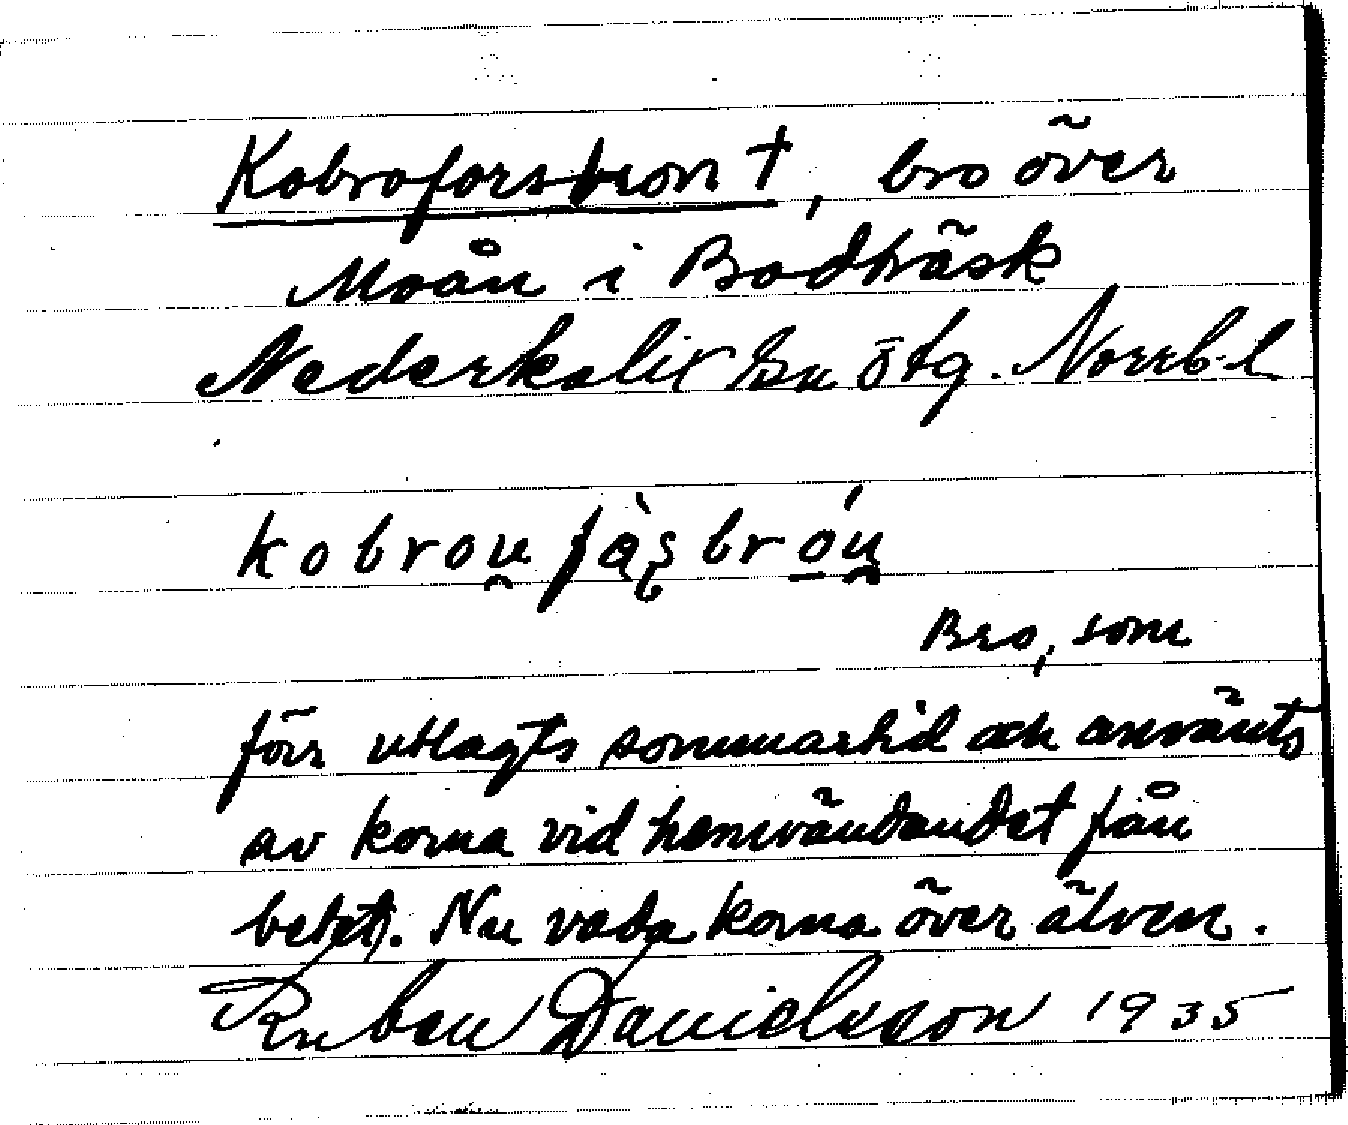 Kobroforsbron †, bro över
Moån i Bodträsk
Nederkalix sn ötg. Norrb. l.
kobrou̯ fàʂbróu̯
Bro, som
förr utlagts sommartid och använts
av korna vid hemvändandet från
betet. Nu vada korna över älven.
Ruben Danielsson 1935